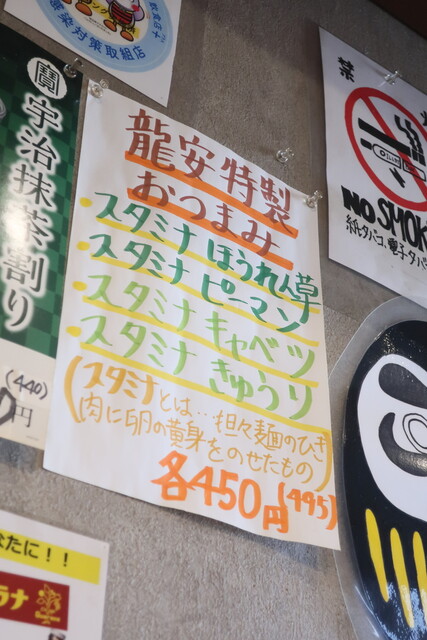 感染対策取組店
宇治抹茶割り
(440)
円
龍安特製
おつまみ
・スタミナ ほうれん草
・スタミナ ピーマン
・スタミナ キャベツ
・スタミナ きゅうり
(スタミナとは…担々麺のひき
肉に卵の黄身をのせたもの)
各450円(495)
禁
NO SMOK
紙タバコ、電子タバ
なたに!!
ラナ